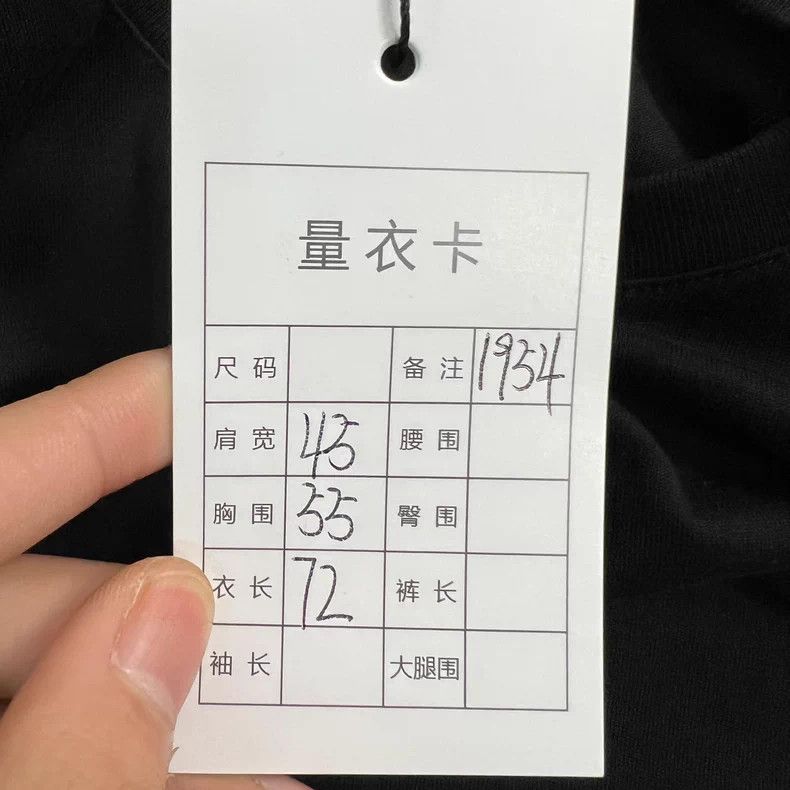 量衣卡
尺码 备注 1954
肩宽 45 腰围
胸围 55 臀围
衣长 72 裤长
袖长 大腿围